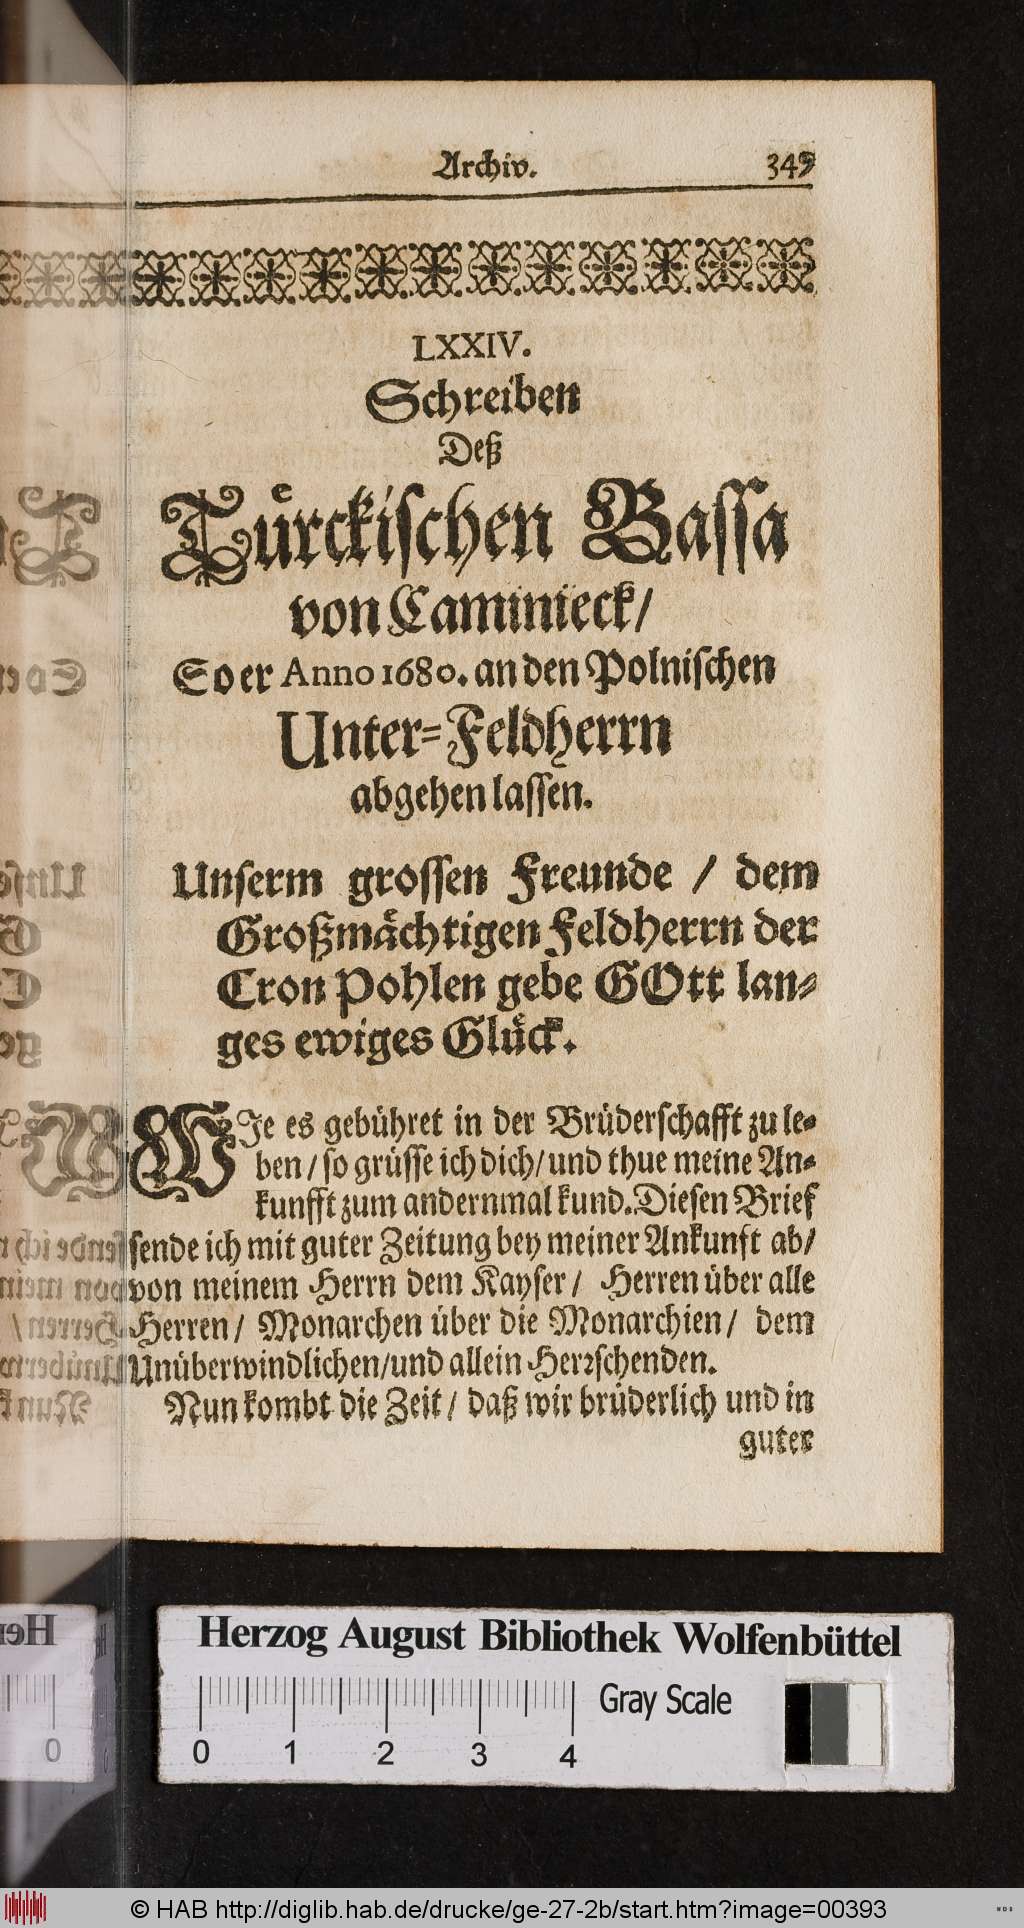 Archiv. 349
LXXIV.
Schreiben
Deß
Tuͤrckischen Bassa
von Caminieck/
So er Anno 1680. an den Polnischen
Unter-Feldherrn
abgehen lassen.
Unserm grossen Freunde / dem
Großmaͤchtigen Feldherrn der
Cron Pohlen gebe GOtt lan-
ges ewiges Gluͤck.
WIe es gebühret in der Brüderschafft zu le-
ben / so grüsse ich dich/ und thue meine An-
kunfft zum andernmal kund. Diesen Brief
sende ich mit guter Zeitung bey meiner Ankunft ab/
von meinem Herrn dem Kayser/ Herren über alle
Herren/ Monarchen über die Monarchien/ dem
Unüberwindlichen/und allein Herrschenden.
Nun kombt die Zeit / daß wir brüderlich und in
guter
Herzog August Bibliothek Wolfenbüttel
Gray Scale
0 1 2 3 4
© HAB http://diglib.hab.de/drucke/ge-27-2b/start.htm?image=00393